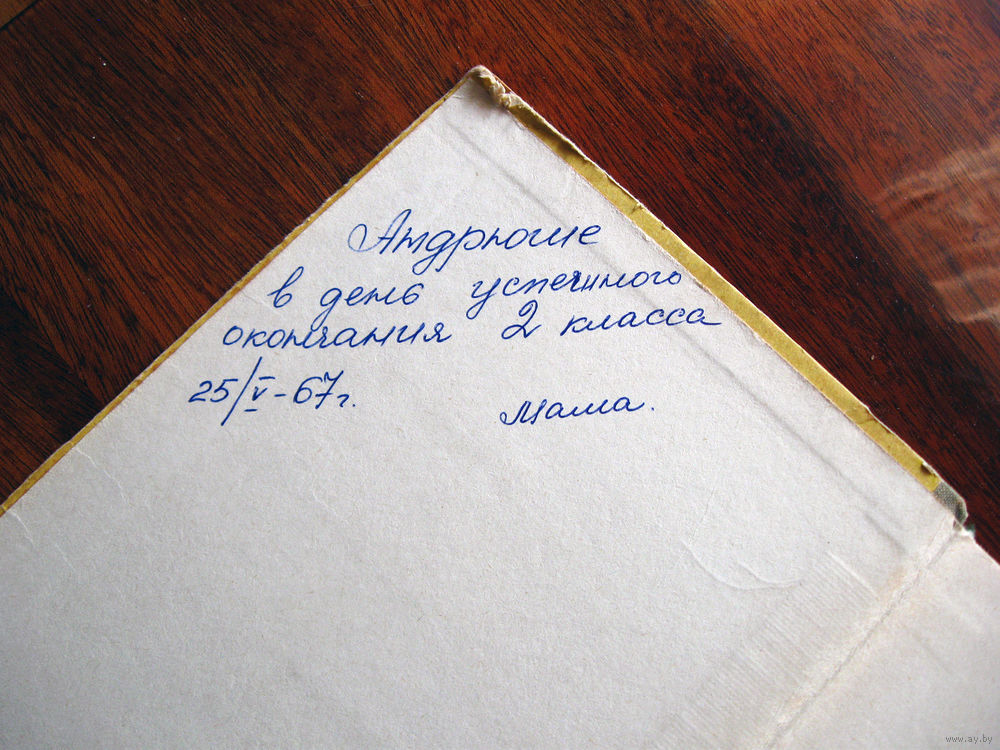 Андрюше
в день успешного
окончания 2 класса
25/V-67г.
Мама.
www.ay.by